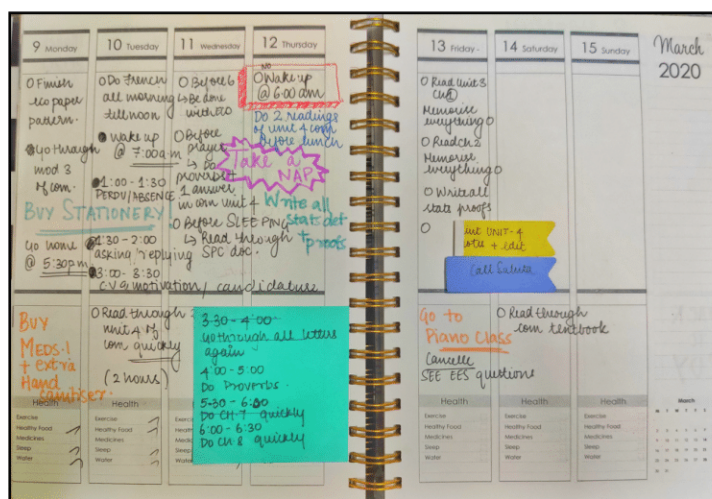 9 Monday
O Finish
eco paper
pattern.
Go through
mod 3
of com.
BUY STATIONERY
Go home
@ 5:30pm
BUY
MEDS!
+ extra
Hand
sanitiser.
Health
Exercise
Healthy Food
Medicines
Sleep
Water
10 Tuesday
O Do French
all morning
till noon
Wake up
@ 7:00a.m
1:00 - 1:30
PERDU/ABSENCE
1:30 - 2:00
asking/replying
3:00 - 3:30
C.V & motivation/candidature
O Read through
unit 4 of
com quickly
(2 hours)
Health
Exercise
Healthy Food
Medicines
Sleep
Water
11 Wednesday
O Before 6
↳ Be done
with eco
O Before
prayer
↳ Do
proverbs +
1 answer
in com unit 4
O Before SLEEPING
↳ Read through
SPC doc.
3:30 - 4:00
Go through all letters
again
4:00 - 5:00
Do Proverbs.
5:30 - 6:30
Do CH-7 quickly
6:00 - 6:30
Do CH 8 quickly
12 Thursday
NO
O Wake up
@ 6:00 am
Do 2 readings
of unit 4 com
Before lunch
Take a
NAP
Write all
stats def
+ proofs
13 Friday
O Read Unit 3
CH
Memorise
everything O
O Read Ch 2
Memorise
everything O
O Write all
stats proofs
O
UNIT-4
+ edit
Call Saluta
Go to
Piano Class
Cancelle
SEE EES questions
Health
Exercise
Healthy Food
Medicines
Sleep
Water
14 Saturday
O Read through
com textbook
Health
Exercise
Healthy Food
Medicines
Sleep
Water
15 Sunday
Health
Exercise
Healthy Food
Medicines
Sleep
Water
March
2020
March